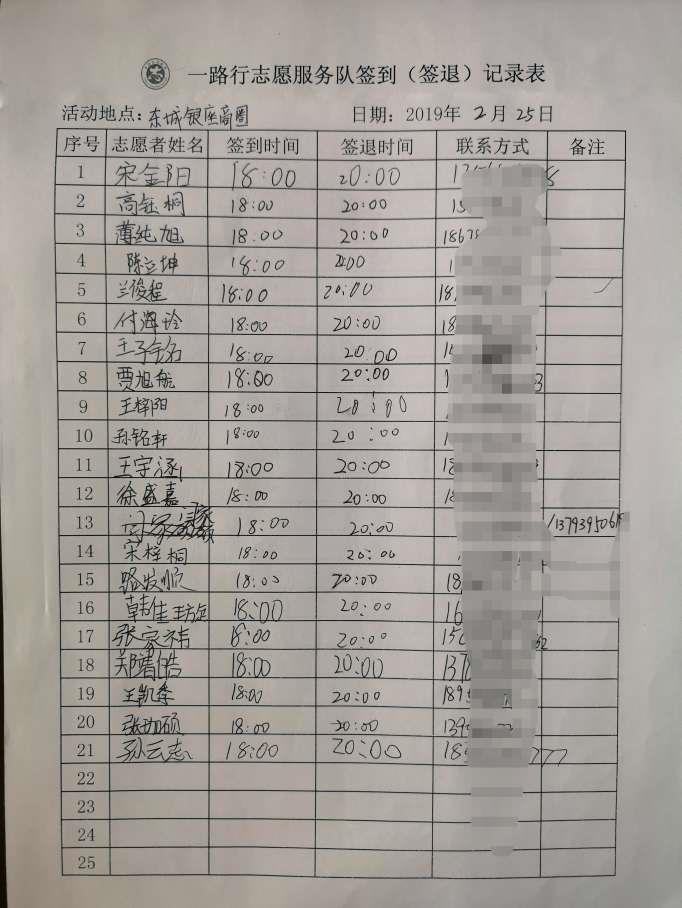 一路行志愿服务队签到（签退）记录表
活动地点：东城银座商圈 日期：2019年 2月 25日
序号 志愿者姓名 签到时间 签退时间 联系方式 备注
1 宋金阳 18:00 20:00
2 高钰桐 18:00 20:00
3 薄纯旭 18:00 20:00 1867
4 陈立坤 18:00
5 兰俊程 18:00 20:00 18
6 付海玲 18:00 20:00 18
7 王子铭 18:00 20:00
8 贾旭航 18:00 20:00
9 王梓阳 18:00 20:00
10 孙铭轩 18:00 20:00
11 王宇涵 18:00 20:00 18
12 徐盛嘉 18:00 20:00 18
13 18:00 20:00
14 宋梓桐 18:00 20:00
15 路发顺 18:00 20:00 18
16 韩佳 18:00 20:00
17 张家祎 18:00 20:00
18 郑皓 18:00 20:00
19 王凯 18:00 20:00 189
20 张硕 18:00 20:00
21 孙云志 18:00 20:00 777
22
23
24
25